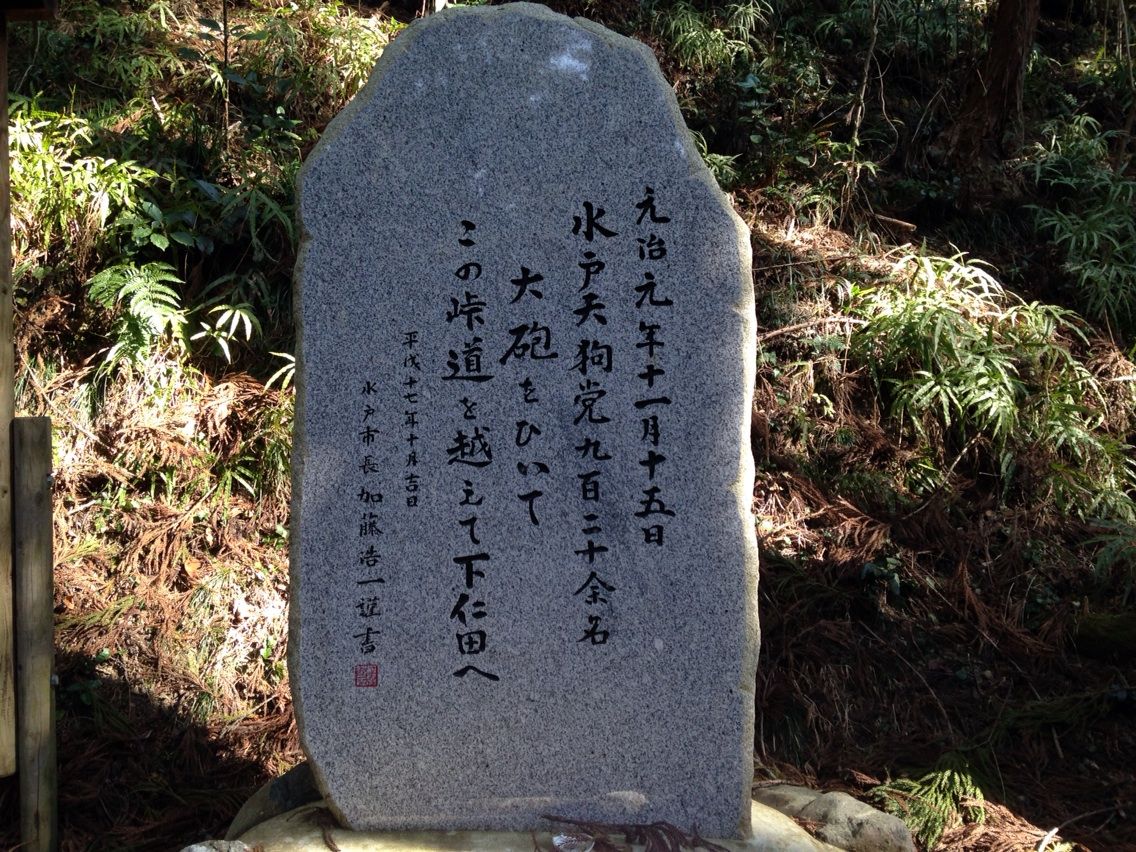 元治元年十一月十五日
水戸天狗党九百二十余名
大砲をひいて
この峠道を越えて下仁田へ
平成十七年十月吉日
水戸市長 加藤浩一謹書